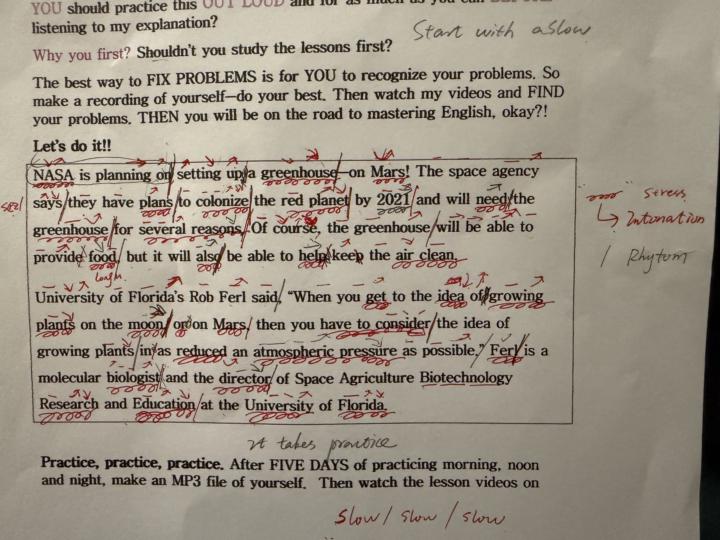 YOU should practice this OUT LOUD and for as much as you can
listening to my explanation?
Start with a slow
Why you first? Shouldn't you study the lessons first?
The best way to FIX PROBLEMS is for YOU to recognize your problems. So
make a recording of yourself—do your best. Then watch my videos and FIND
your problems. THEN you will be on the road to mastering English, okay?!
Let's do it!!
NASA is planning on setting up a greenhouse—on Mars! The space agency
says they have plans to colonize the red planet by 2021 and will need the
stress
greenhouse for several reasons. Of course, the greenhouse will be able to
Intonation
provide food, but it will also be able to help keep the air clean.
/ Rhytom
University of Florida's Rob Ferl said, "When you get to the idea of growing
plants on the moon, or on Mars, then you have to consider the idea of
growing plants in as reduced an atmospheric pressure as possible." Ferl is a
molecular biologist and the director of Space Agriculture Biotechnology
Research and Education at the University of Florida.
It takes practice
Practice, practice, practice. After FIVE DAYS of practicing morning, noon
and night, make an MP3 file of yourself. Then watch the lesson videos on
Slow / slow / slow